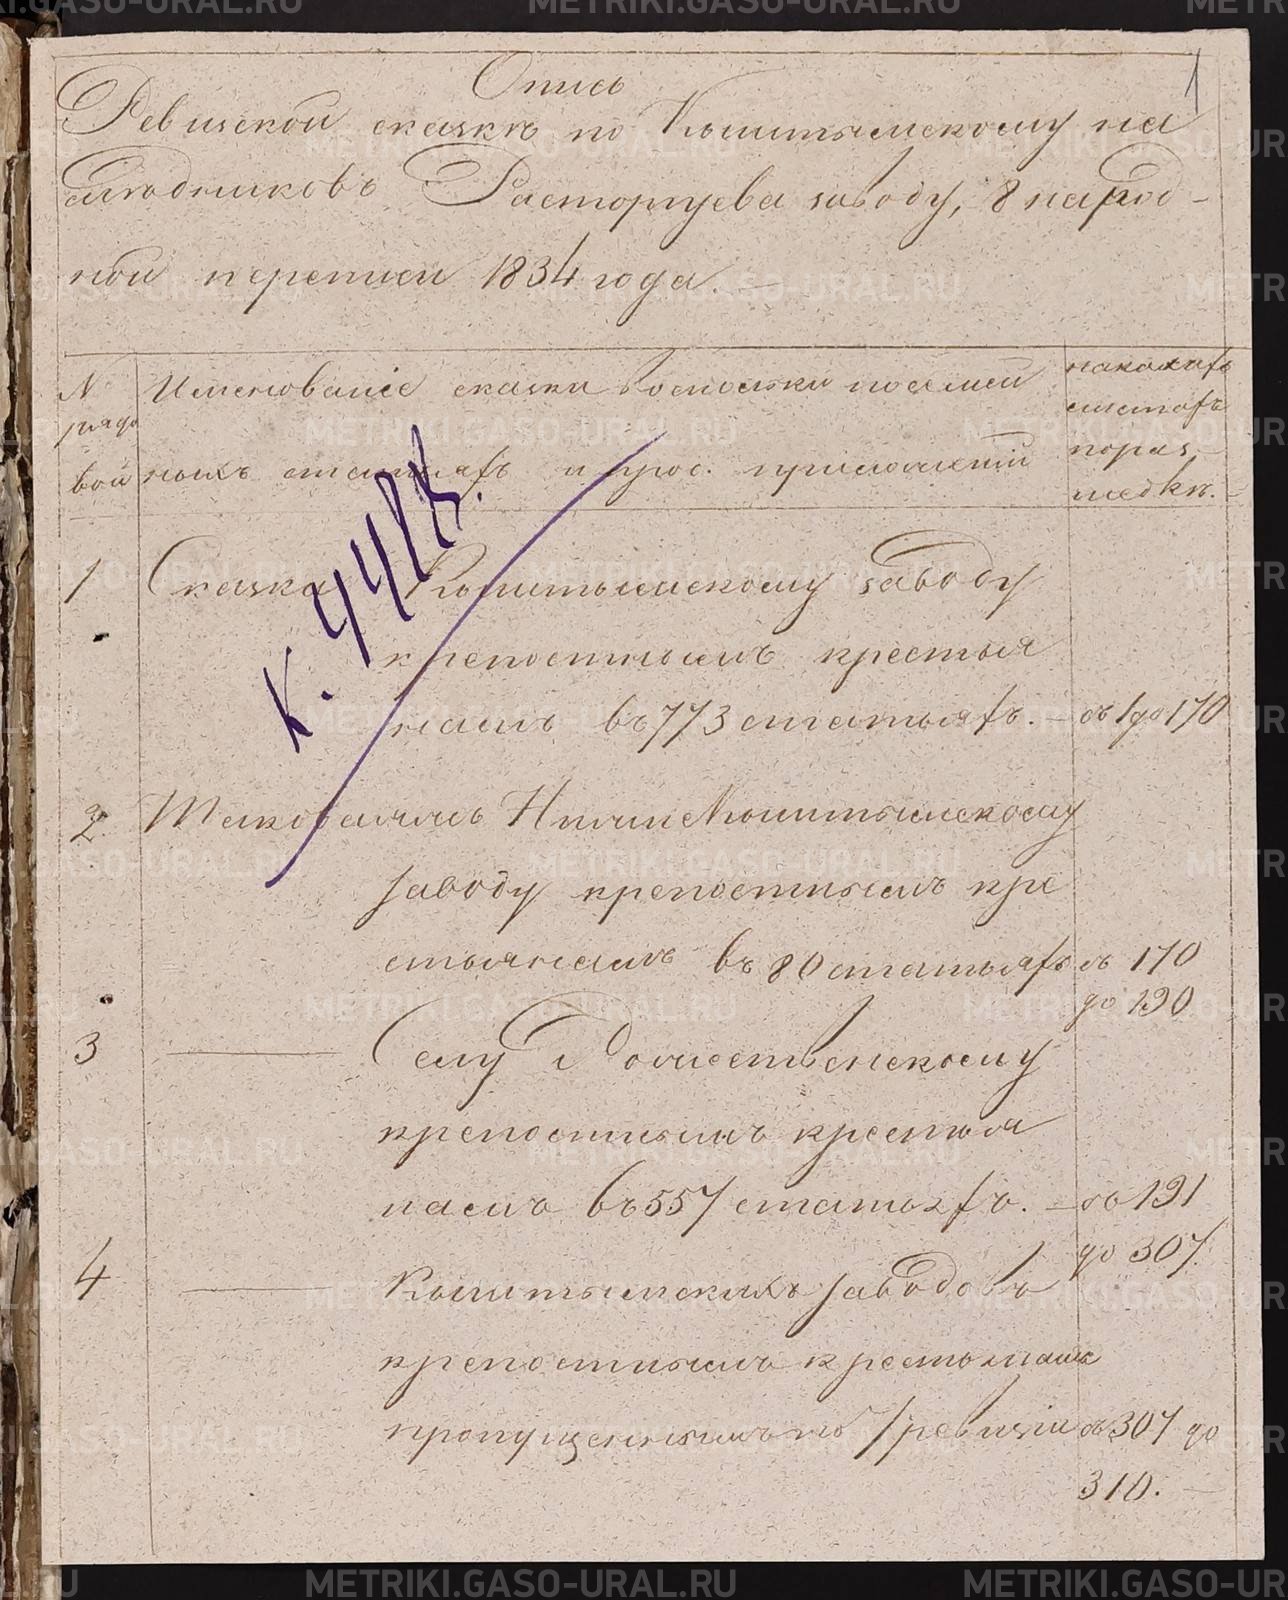 1
Опись
Ревизской сказкѣ по Кыштымскому на
слѣдниковъ Расторгуева заводу, 8 народ-
ной переписи 1834 года.
№ рядо вой
Именованіе сказки
ныхъ статьяхъ и
1 Сказка Кыштымскому заводу
крепостнымъ крестья
намъ въ 773 статьяхъ. — съ 1 до 170
2. Таковаяжъ Нижне Кыштымскому
заводу крепостнымъ кре
стьянамъ въ 80 статьяхъ съ 170
до 190
3 — Селу Рождественскому
крепостнымъ крестья
намъ въ 557 статьяхъ. — съ 191
до 307.
4 — Кыштымскихъ заводовъ
крепостнымъ крестьянамъ
пропущеннымъ по 7 ревизіи съ 307 до
310. —
К. 448
METRIKI.GASO-URAL.RU